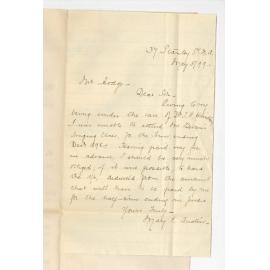 37 Stanley St. W.A.
May 8/99 -
Mr Hodge
Dear Sir -
Owing to my
being under the care of Dr
I was unable to attend Mr
Singing Class, for the term ending
Dec 1898. Having paid my fee
in advance, I should be very much
obliged, if it were possible, to have
the deducted from the amount
that will have to be paid by me
for the half-term ending in June
Yours truly -
Mary E.